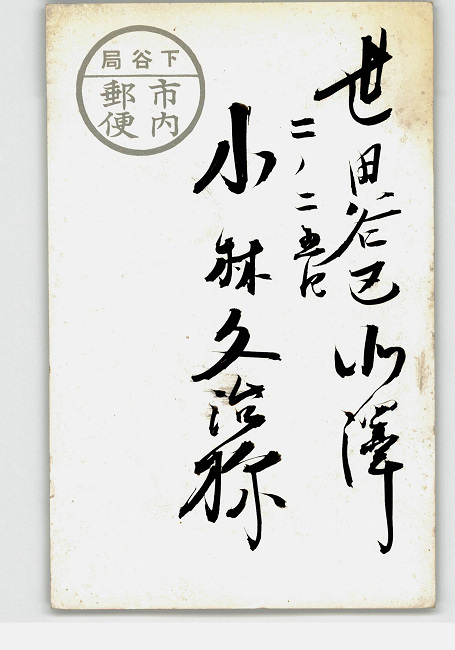 世田谷区北澤
二ノ二五
小林久治様
下谷局
市内
郵便